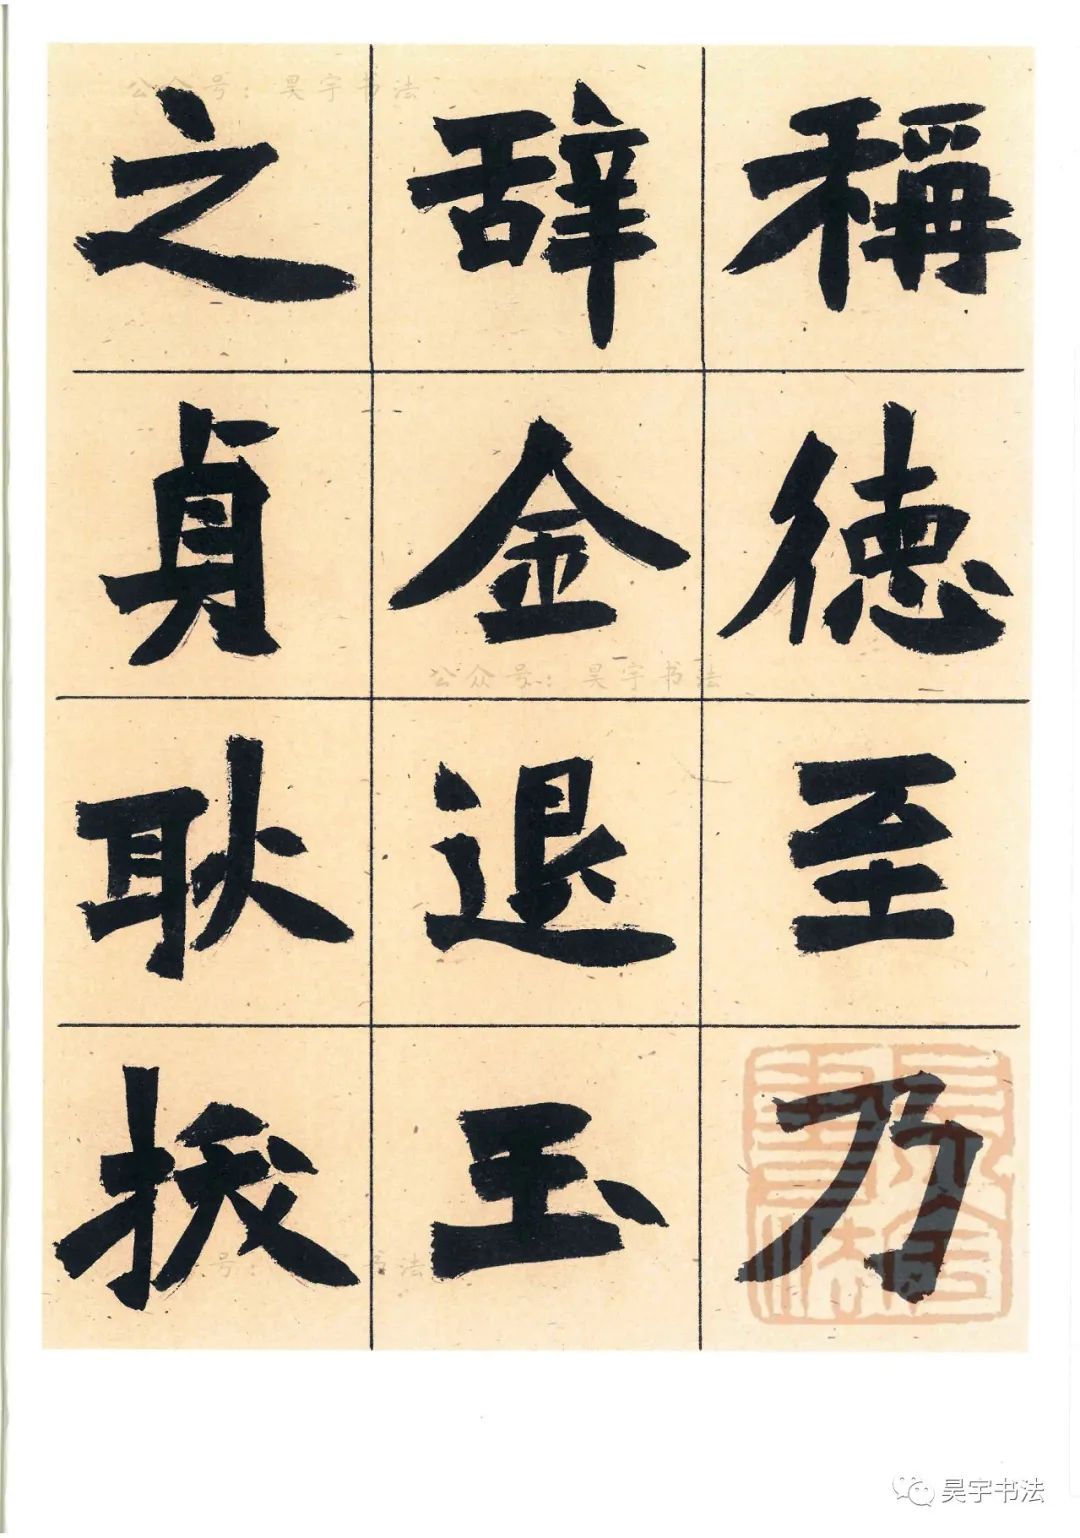 稱德至乃
辞金退玉
之貞耿拔
公众号：昊宇书法
公众号：昊宇书法
号：书法
昊宇书法